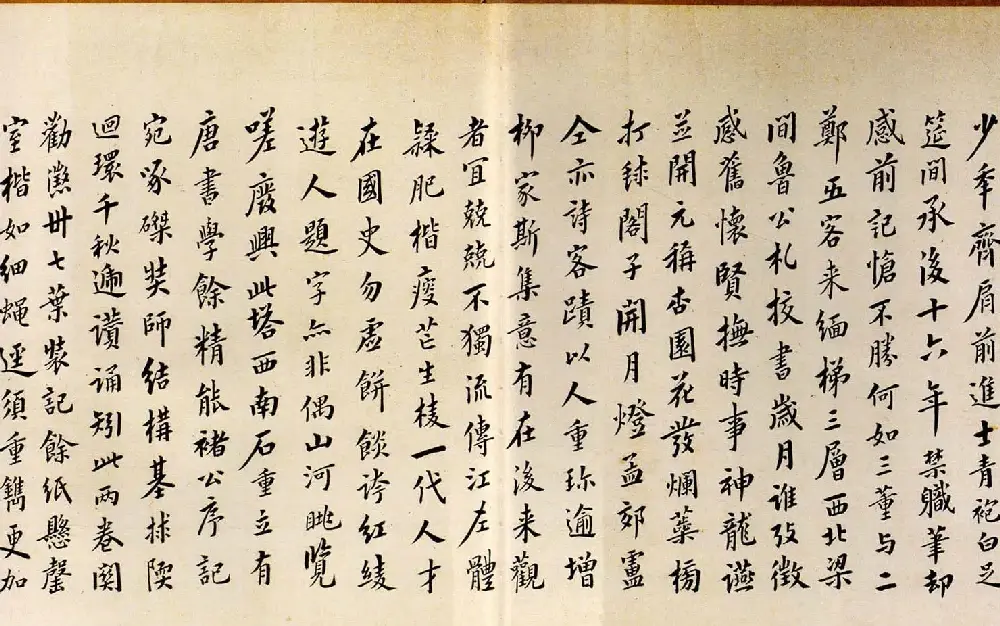 少秊齊肩前進士青袍白足
筵間承後十六年禁職筆却
感前記愴不勝何如三董与二
鄭五客来緬梯三層西北梁
間魯公札挍書歲月誰攷徵
感舊懷賢撫時事神龍讌
並開元稱杏園花發爛蘂榜
打毬閣子開月燈孟郊盧
仝亦詩客蹟以人重珎逾增
柳家斯集意有在後来觀
者宜兢兢不獨流傳江左體
糅肥楷瘦芒生棱一代人才
在國史勿虛餅餤誇紅綾
遊人題字亦非偶山河眺覽
嗟廢興此塔西南石重立有
唐書學餘精能褚公序記
宛啄磔奘師結構基捄陾
迴環千秋遞讚誦矧此兩卷関
勸懲卅七葉裝記餘紙懸罄
室楷如細蠅須重鐫更加